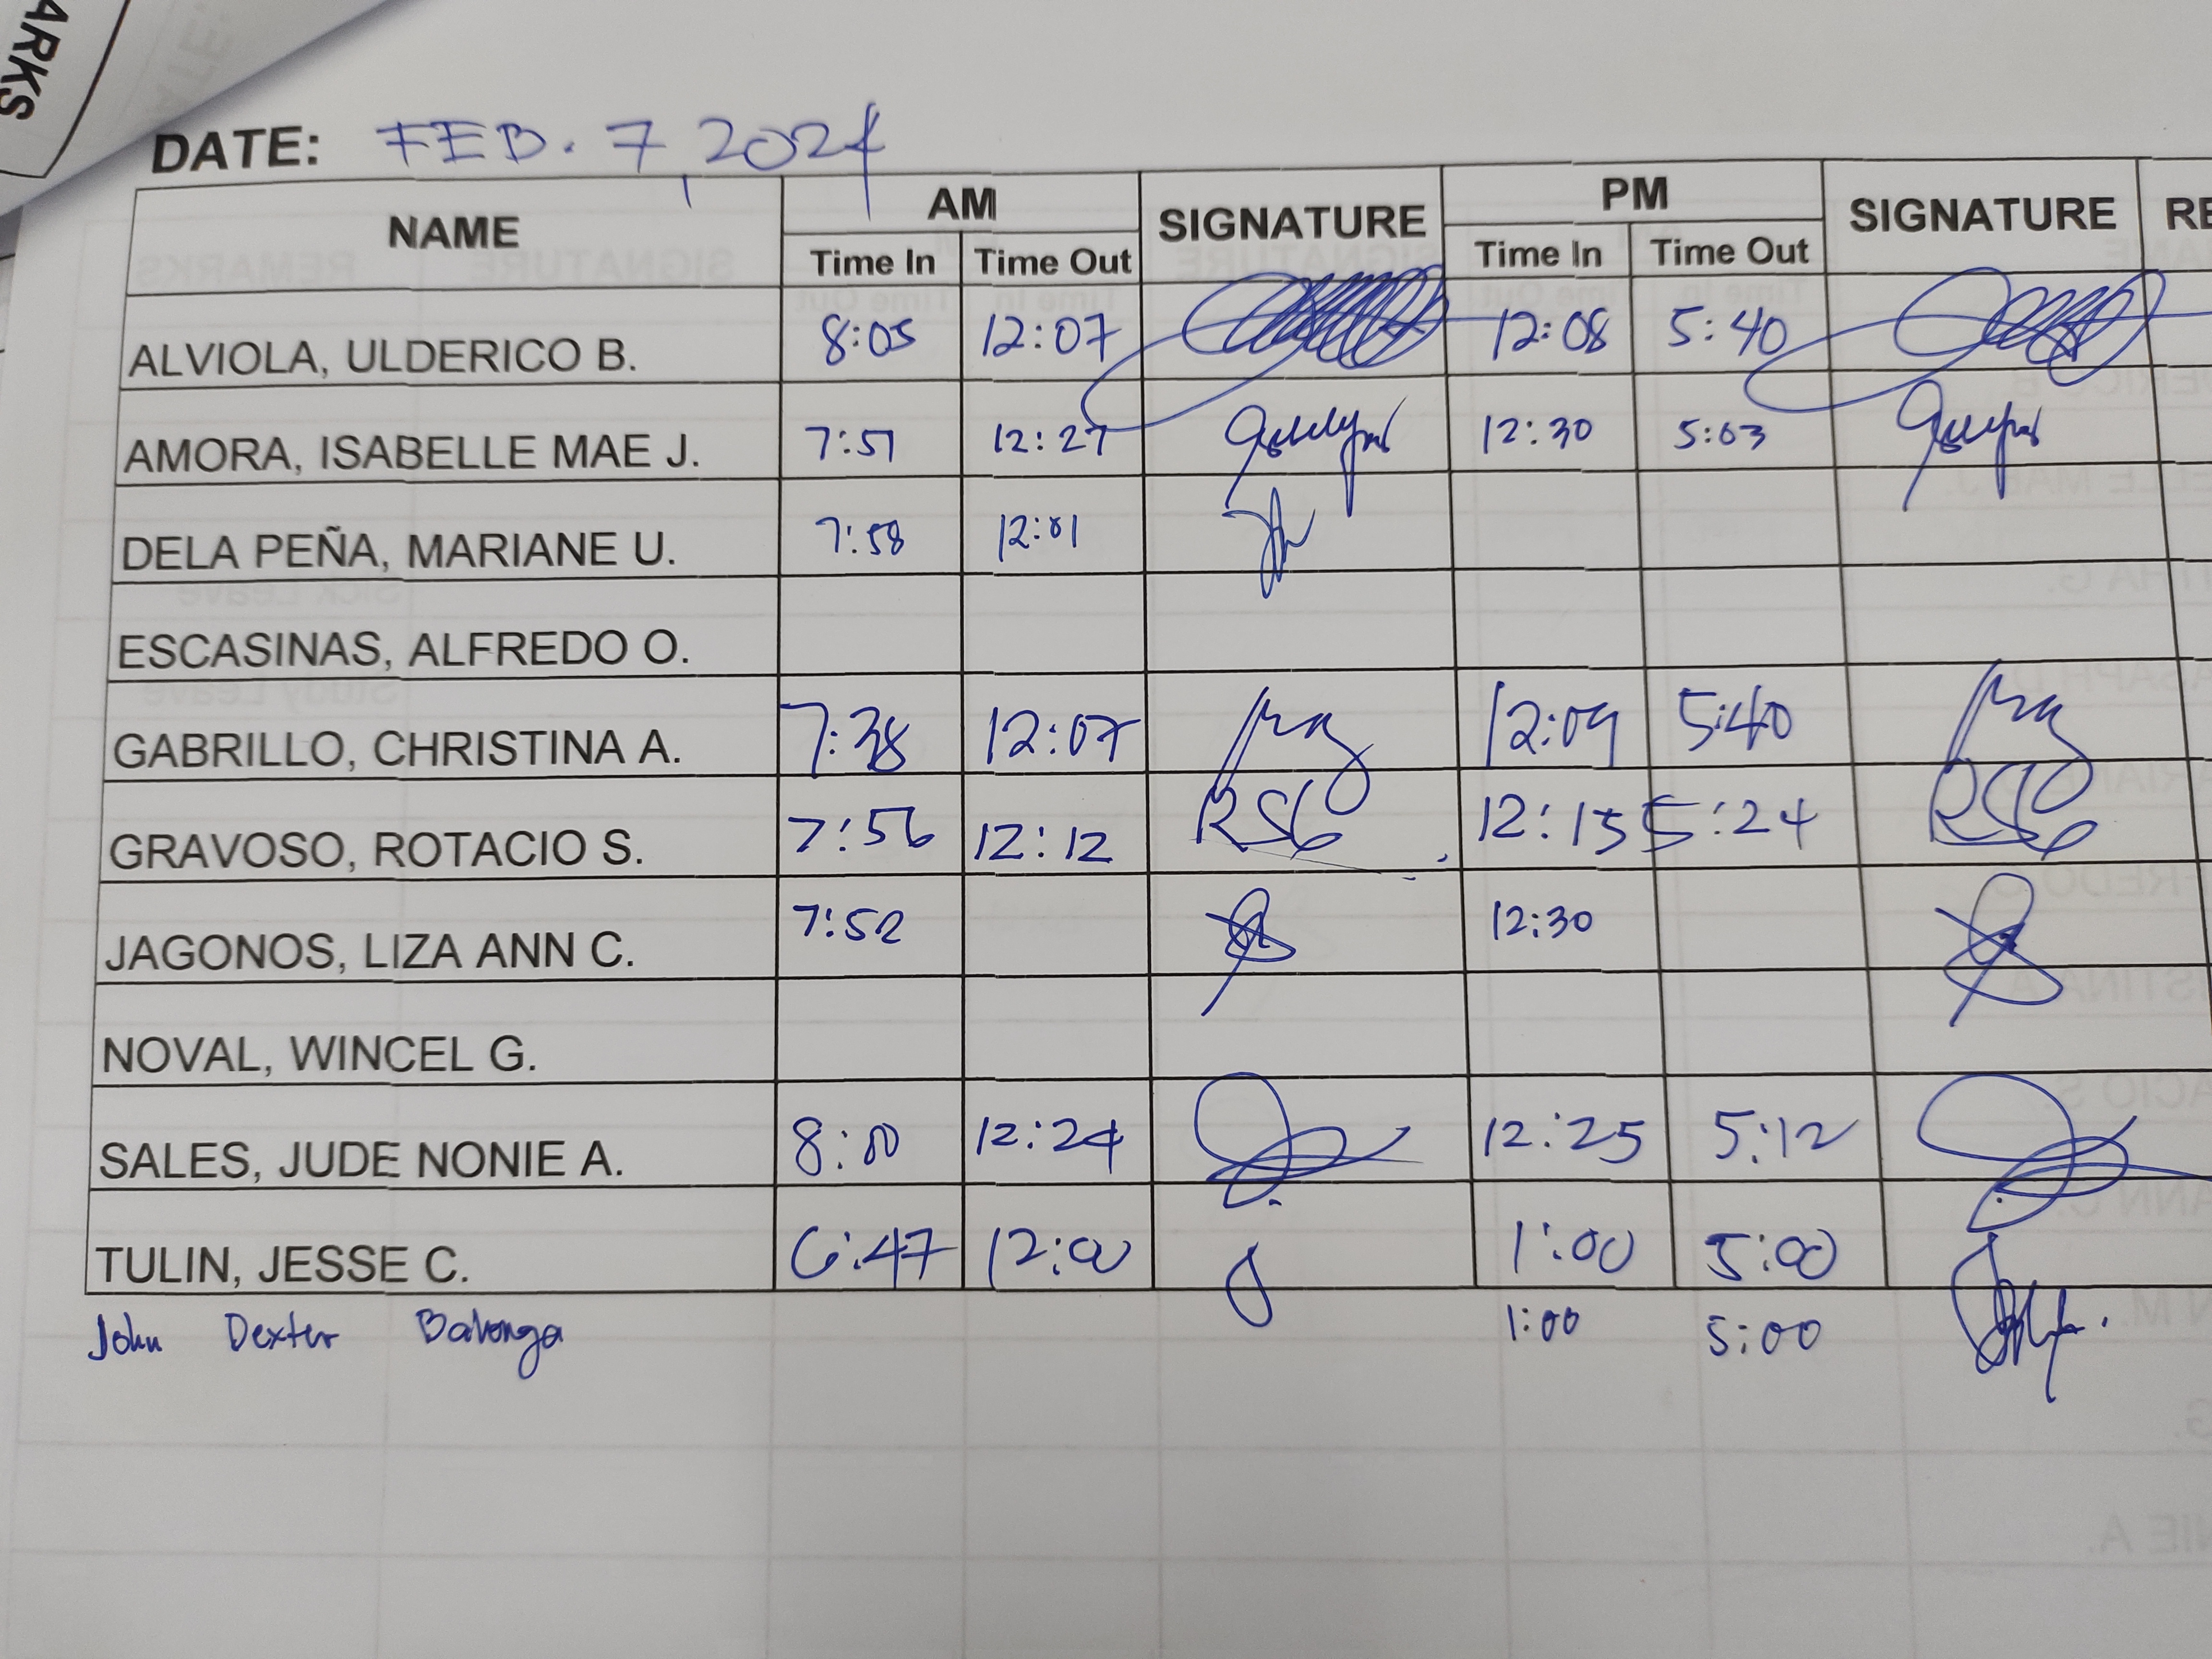 ARKS
DATE: FEB. 7, 2024
NAME AM SIGNATURE PM SIGNATURE RE
Time In Time Out Time In Time Out
ALVIOLA, ULDERICO B. 8:05 12:07 12:08 5:40
AMORA, ISABELLE MAE J. 7:51 12:27 12:30 5:03
DELA PEÑA, MARIANE U. 7:58 12:01
ESCASINAS, ALFREDO O.
GABRILLO, CHRISTINA A. 7:38 12:07 12:09 5:40
GRAVOSO, ROTACIO S. 7:56 12:12 RSG 12:15 5:24 RSG
JAGONOS, LIZA ANN C. 7:52 12:30
NOVAL, WINCEL G.
SALES, JUDE NONIE A. 8:00 12:24 12:25 5:12
TULIN, JESSE C. 6:47 12:00 1:00 5:00
John Dexter Balonga 1:00 5:00